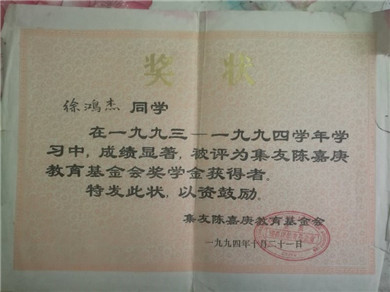 奖状
徐鸿杰 同学
在一九九三—一九九四学年学
习中，成绩显著，被评为集友陈嘉庚
教育基金会奖学金获得者。
特发此状，以资鼓励。
集友陈嘉庚教育基金会
一九九四年十月二十一日